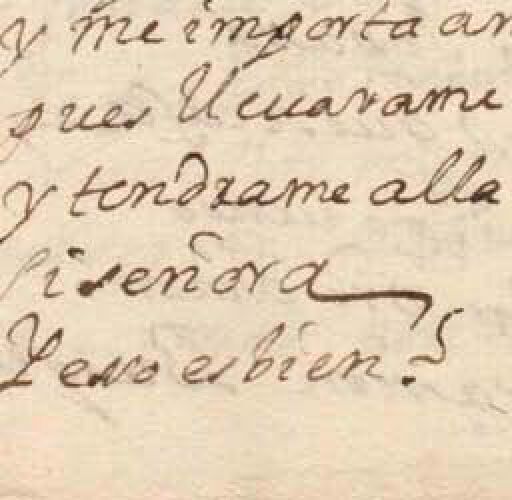 y me importa an
pues lleuarame
y tendrame alla
si señora
Y eso es bien?